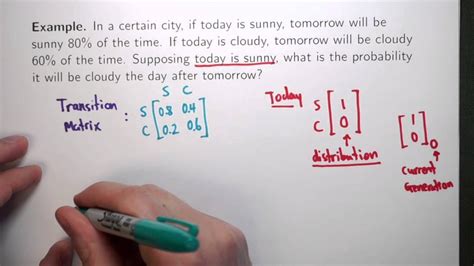 Example. In a certain city, if today is sunny, tomorrow will be
sunny 80% of the time. If today is cloudy, tomorrow will be cloudy
60% of the time. Supposing today is sunny, what is the probability
it will be cloudy the day after tomorrow?
S C
Transition Matrix : S [0.8 0.4]
C [0.2 0.6]
Today S [1]
C [0]
distribution
[1]
[0] 0
current
Generation
Sharpie